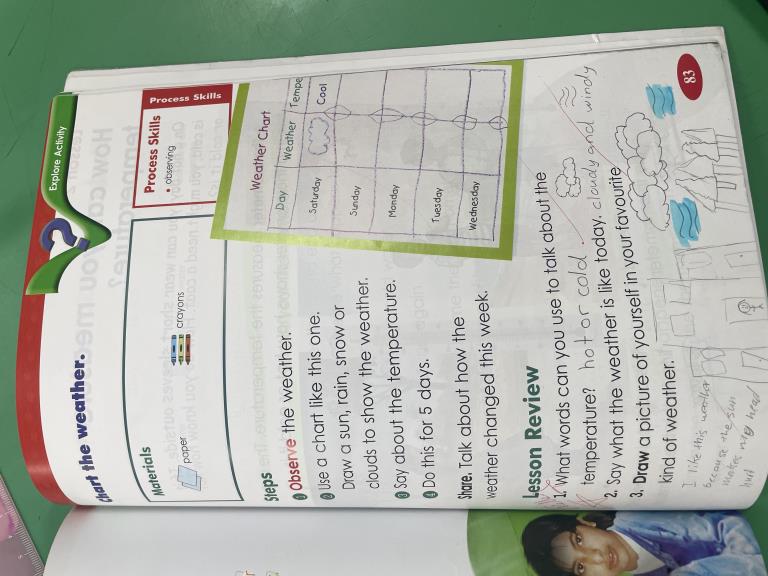 Explore Activity
Chart the weather.
Materials
paper
crayons
Process Skills
Process Skills
• observing
Steps
1 Observe the weather.
2 Use a chart like this one.
Draw a sun, rain, snow or
clouds to show the weather.
3 Say about the temperature.
4 Do this for 5 days.
Share. Talk about how the
weather changed this week.
Weather Chart
Day Weather Tempe
Saturday Cool
Sunday
Monday
Tuesday
Wednesday
Lesson Review
1. What words can you use to talk about the
temperature? hot or cold.
2. Say what the weather is like today. cloudy and windy
3. Draw a picture of yourself in your favourite
kind of weather.
I like this weather
because the sun
makes my head
hurt
83